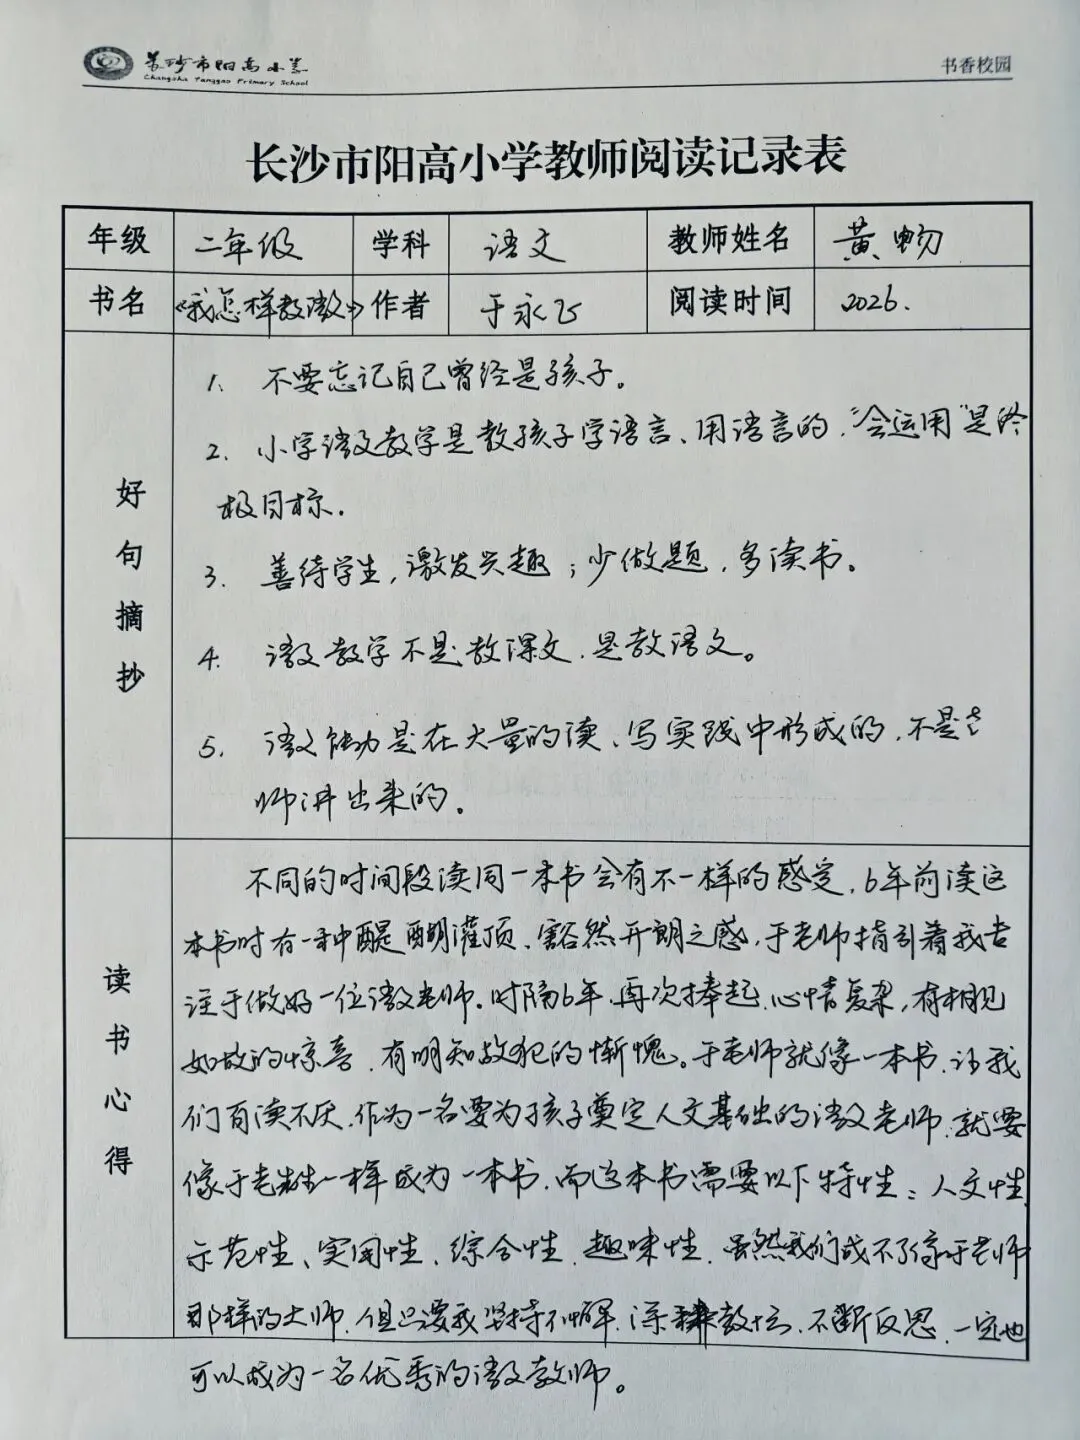 长沙市阳高小学
Changsha Yanggao Primary School
书香校园
长沙市阳高小学教师阅读记录表
年级 二年级 学科 语文 教师姓名 黄畅
书名 《我怎样教语文》 作者 于永正 阅读时间 2026.
好句摘抄
1. 不要忘记自己曾经是孩子。
2. 小学语文教学是教孩子学语言、用语言的,“会运用”是终
极目标.
3. 善待学生,激发兴趣;少做题,多读书。
4. 语文教学不是教课文,是教语文。
5. 语文能力是在大量的读、写实践中形成的,不是老
师讲出来的。
读书心得
不同的时间段读同一本书会有不一样的感受,6年前读这
本书时有一种醍醐灌顶、豁然开朗之感,于老师指引着我专
注于做好一位语文老师。时隔6年,再次捧起,心情复杂,有相见
如故的惊喜,有明知故犯的惭愧。于老师就像一本书,让我
们百读不厌.作为一名要为孩子奠定人文基础的语文老师,就要
像于老先生一样成为一本书,而这本书需要以下特性:人文性、
示范性、实用性、综合性、趣味性.虽然我们成不了像于老师
那样的大师,但只要我坚持不懈,深耕教坛,不断反思,一定也
可以成为一名优秀的语文教师。